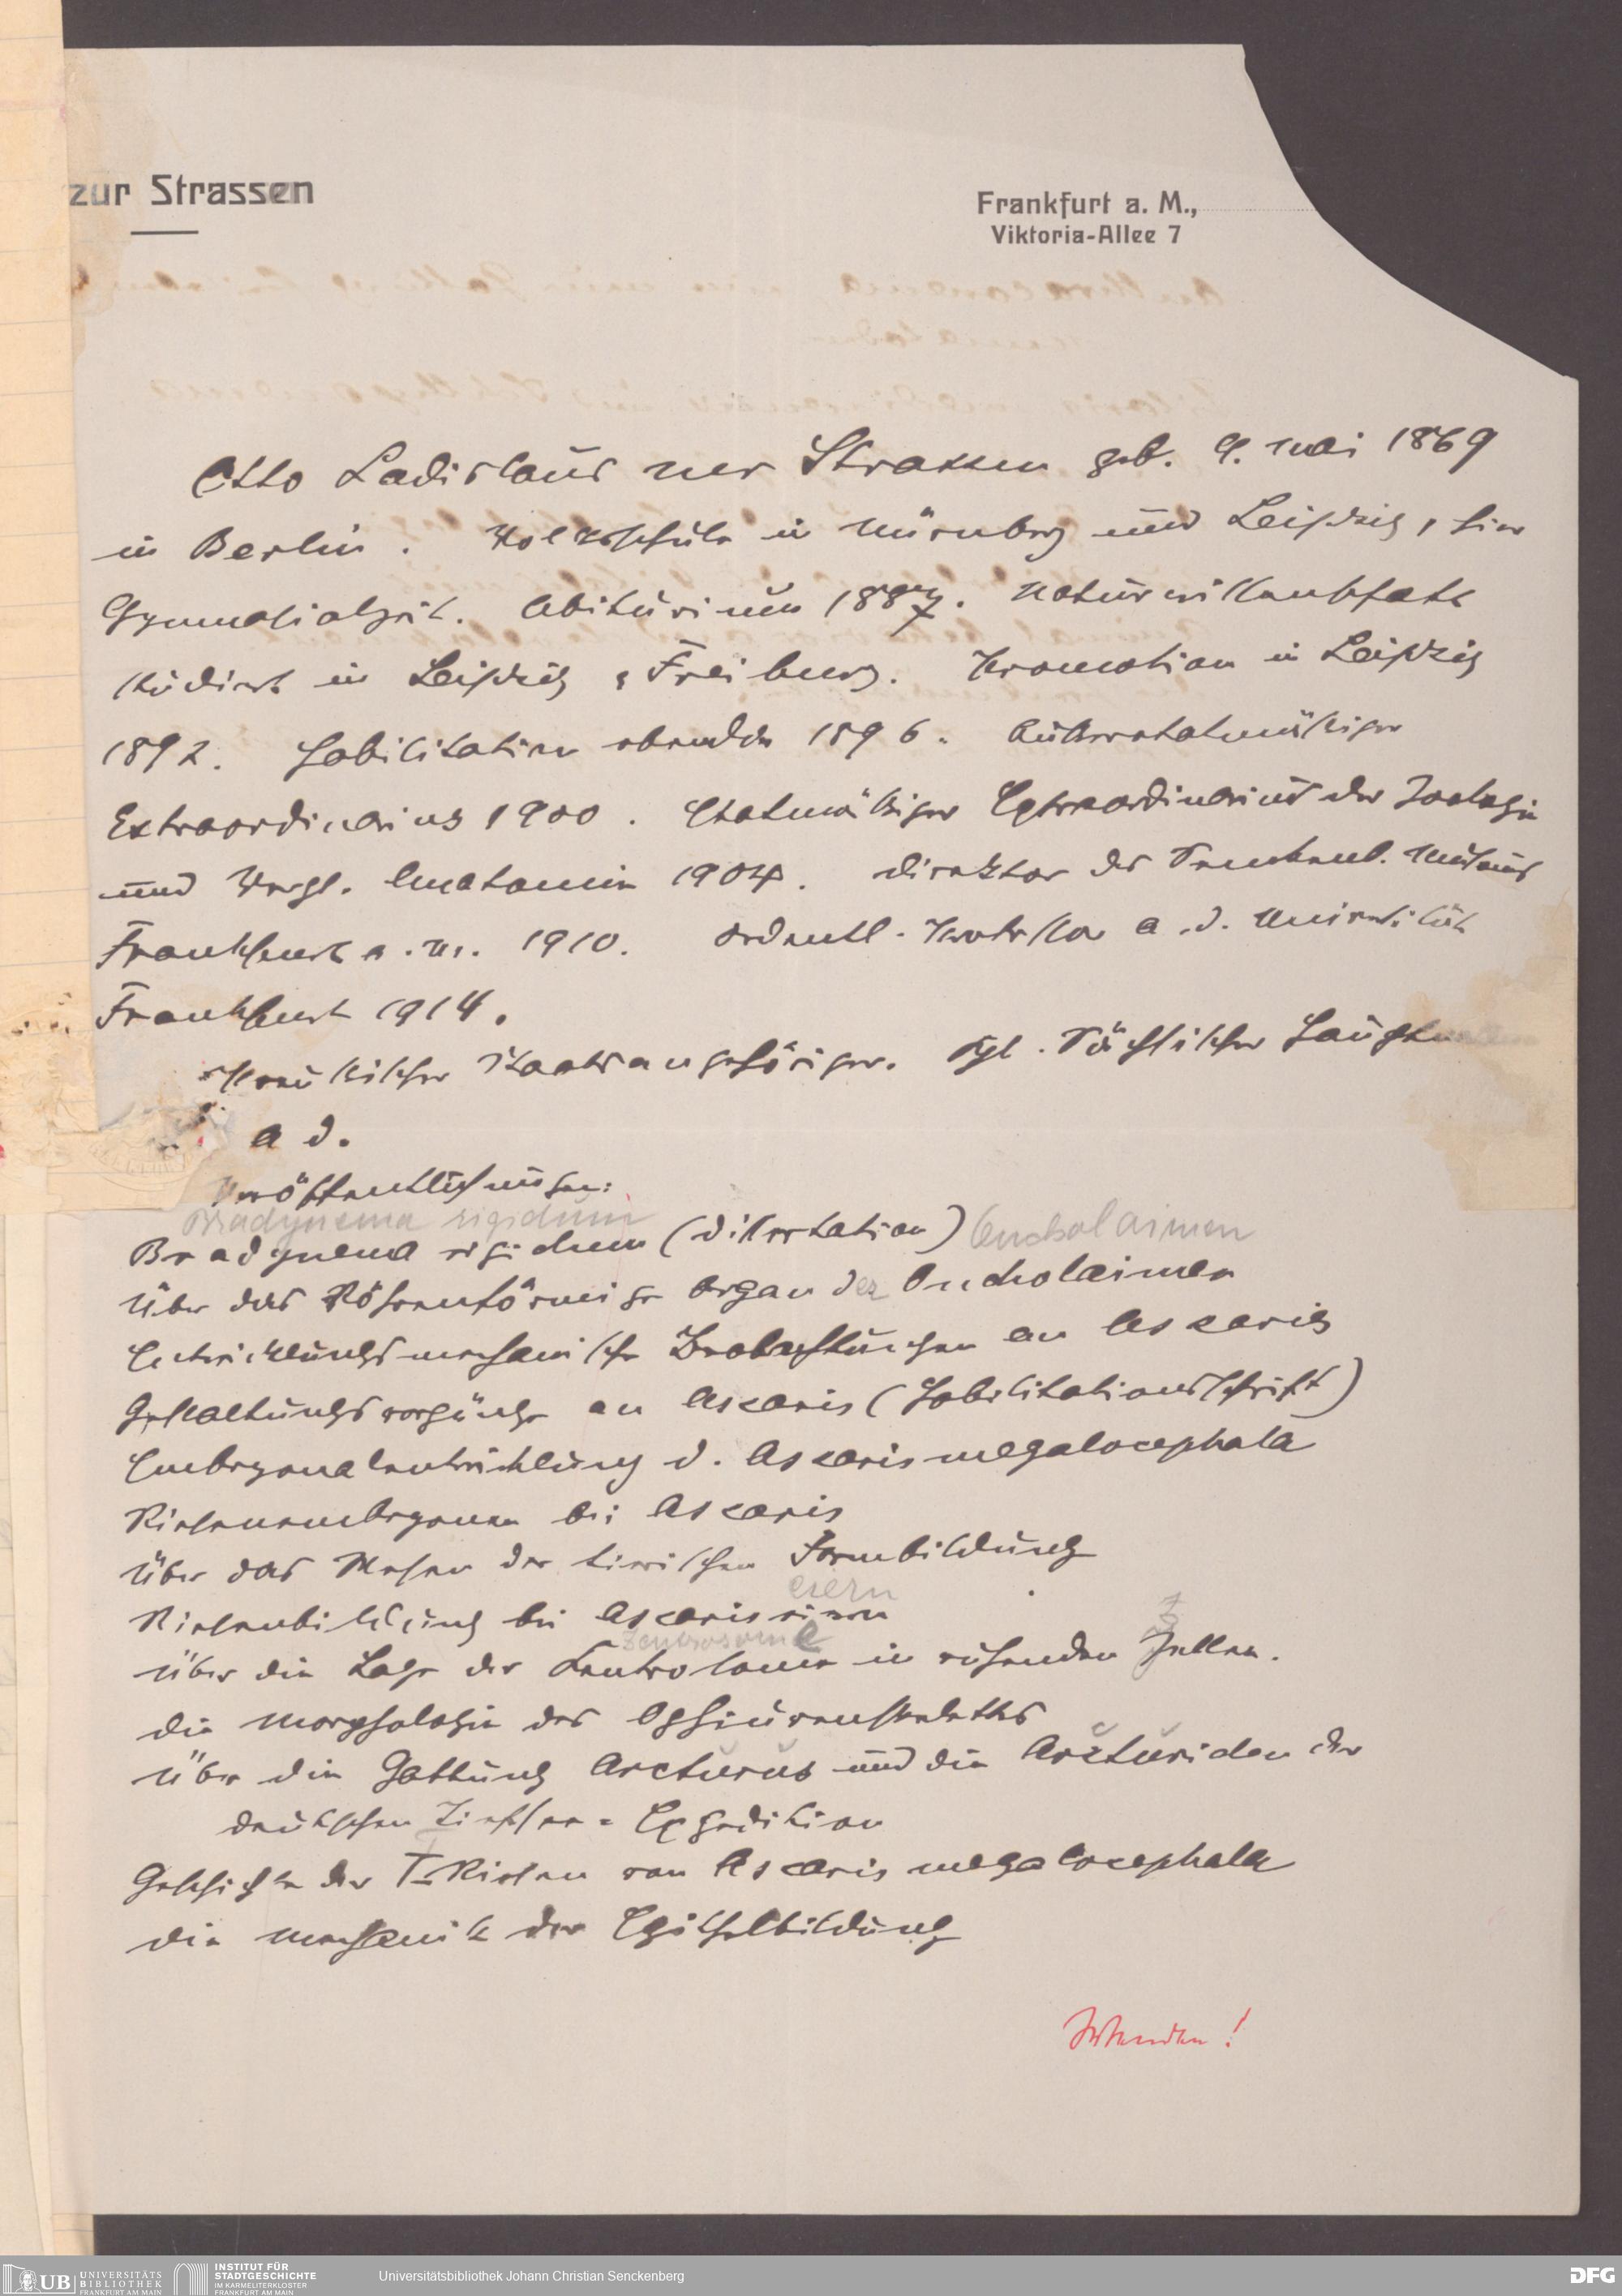 zur Strassen
Frankfurt a. M.,
Viktoria-Allee 7
Otto Ladislaus zur Strassen geb. 9. Mai 1869
in Berlin. Volksschule in Nürnberg und Leipzig, hier
Gymnasialzeit. Abiturium 1887. Naturwissenschaft
studiert in Leipzig & Freiburg. Promotion in Leipzig
1892. Habilitation ebenda 1896. Außeretatmäßiger
Extraordinarius 1900. Etatmäßiger Extraordinarius der Zoologie
und Vergl. Anatomie 1904. Direktor des Senckenb. Museums
Frankfurt a. M. 1910. Ordentl. Professor a. d. Universität
Frankfurt 1914.
Preußischer Staatsangehöriger. Kgl. Sächsischer Hauptm
a d.
Veröffentlichungen:
Bradynema rigidum
Bradynema rigidum (Dissertation) Oncholaimen
Über das Röhrenförmige Organ der Oncholaimen
Entwicklungsmechanische Beobachtungen an Ascaris
Gestaltungsvorgänge an Ascaris (Habilitationsschrift)
Embryonalentwicklung d. Ascaris megalocephala
Riesenembryonen bei Ascaris
Über das Wesen der tierischen Formbildung
eiern
Riesenbildung bei Ascariseiern
Zentrosome
Über die Lage der Centrosome in ruhenden Zellen.
Die Morphologie des Ophiurenskeletts
Über die Gattung Arcturus und die Arcturiden der
deutschen Tiefsee-Expedition
Geschichte der T-Riesen von Ascaris megalocephala
Die Mechanik der Epithelbildung
Wenden!
UB UNIVERSITÄTS
BIBLIOTHEK
FRANKFURT AM MAIN
INSTITUT FÜR
STADTGESCHICHTE
IM KARMELITERKLOSTER
FRANKFURT AM MAIN
Universitätsbibliothek Johann Christian Senckenberg
DFG